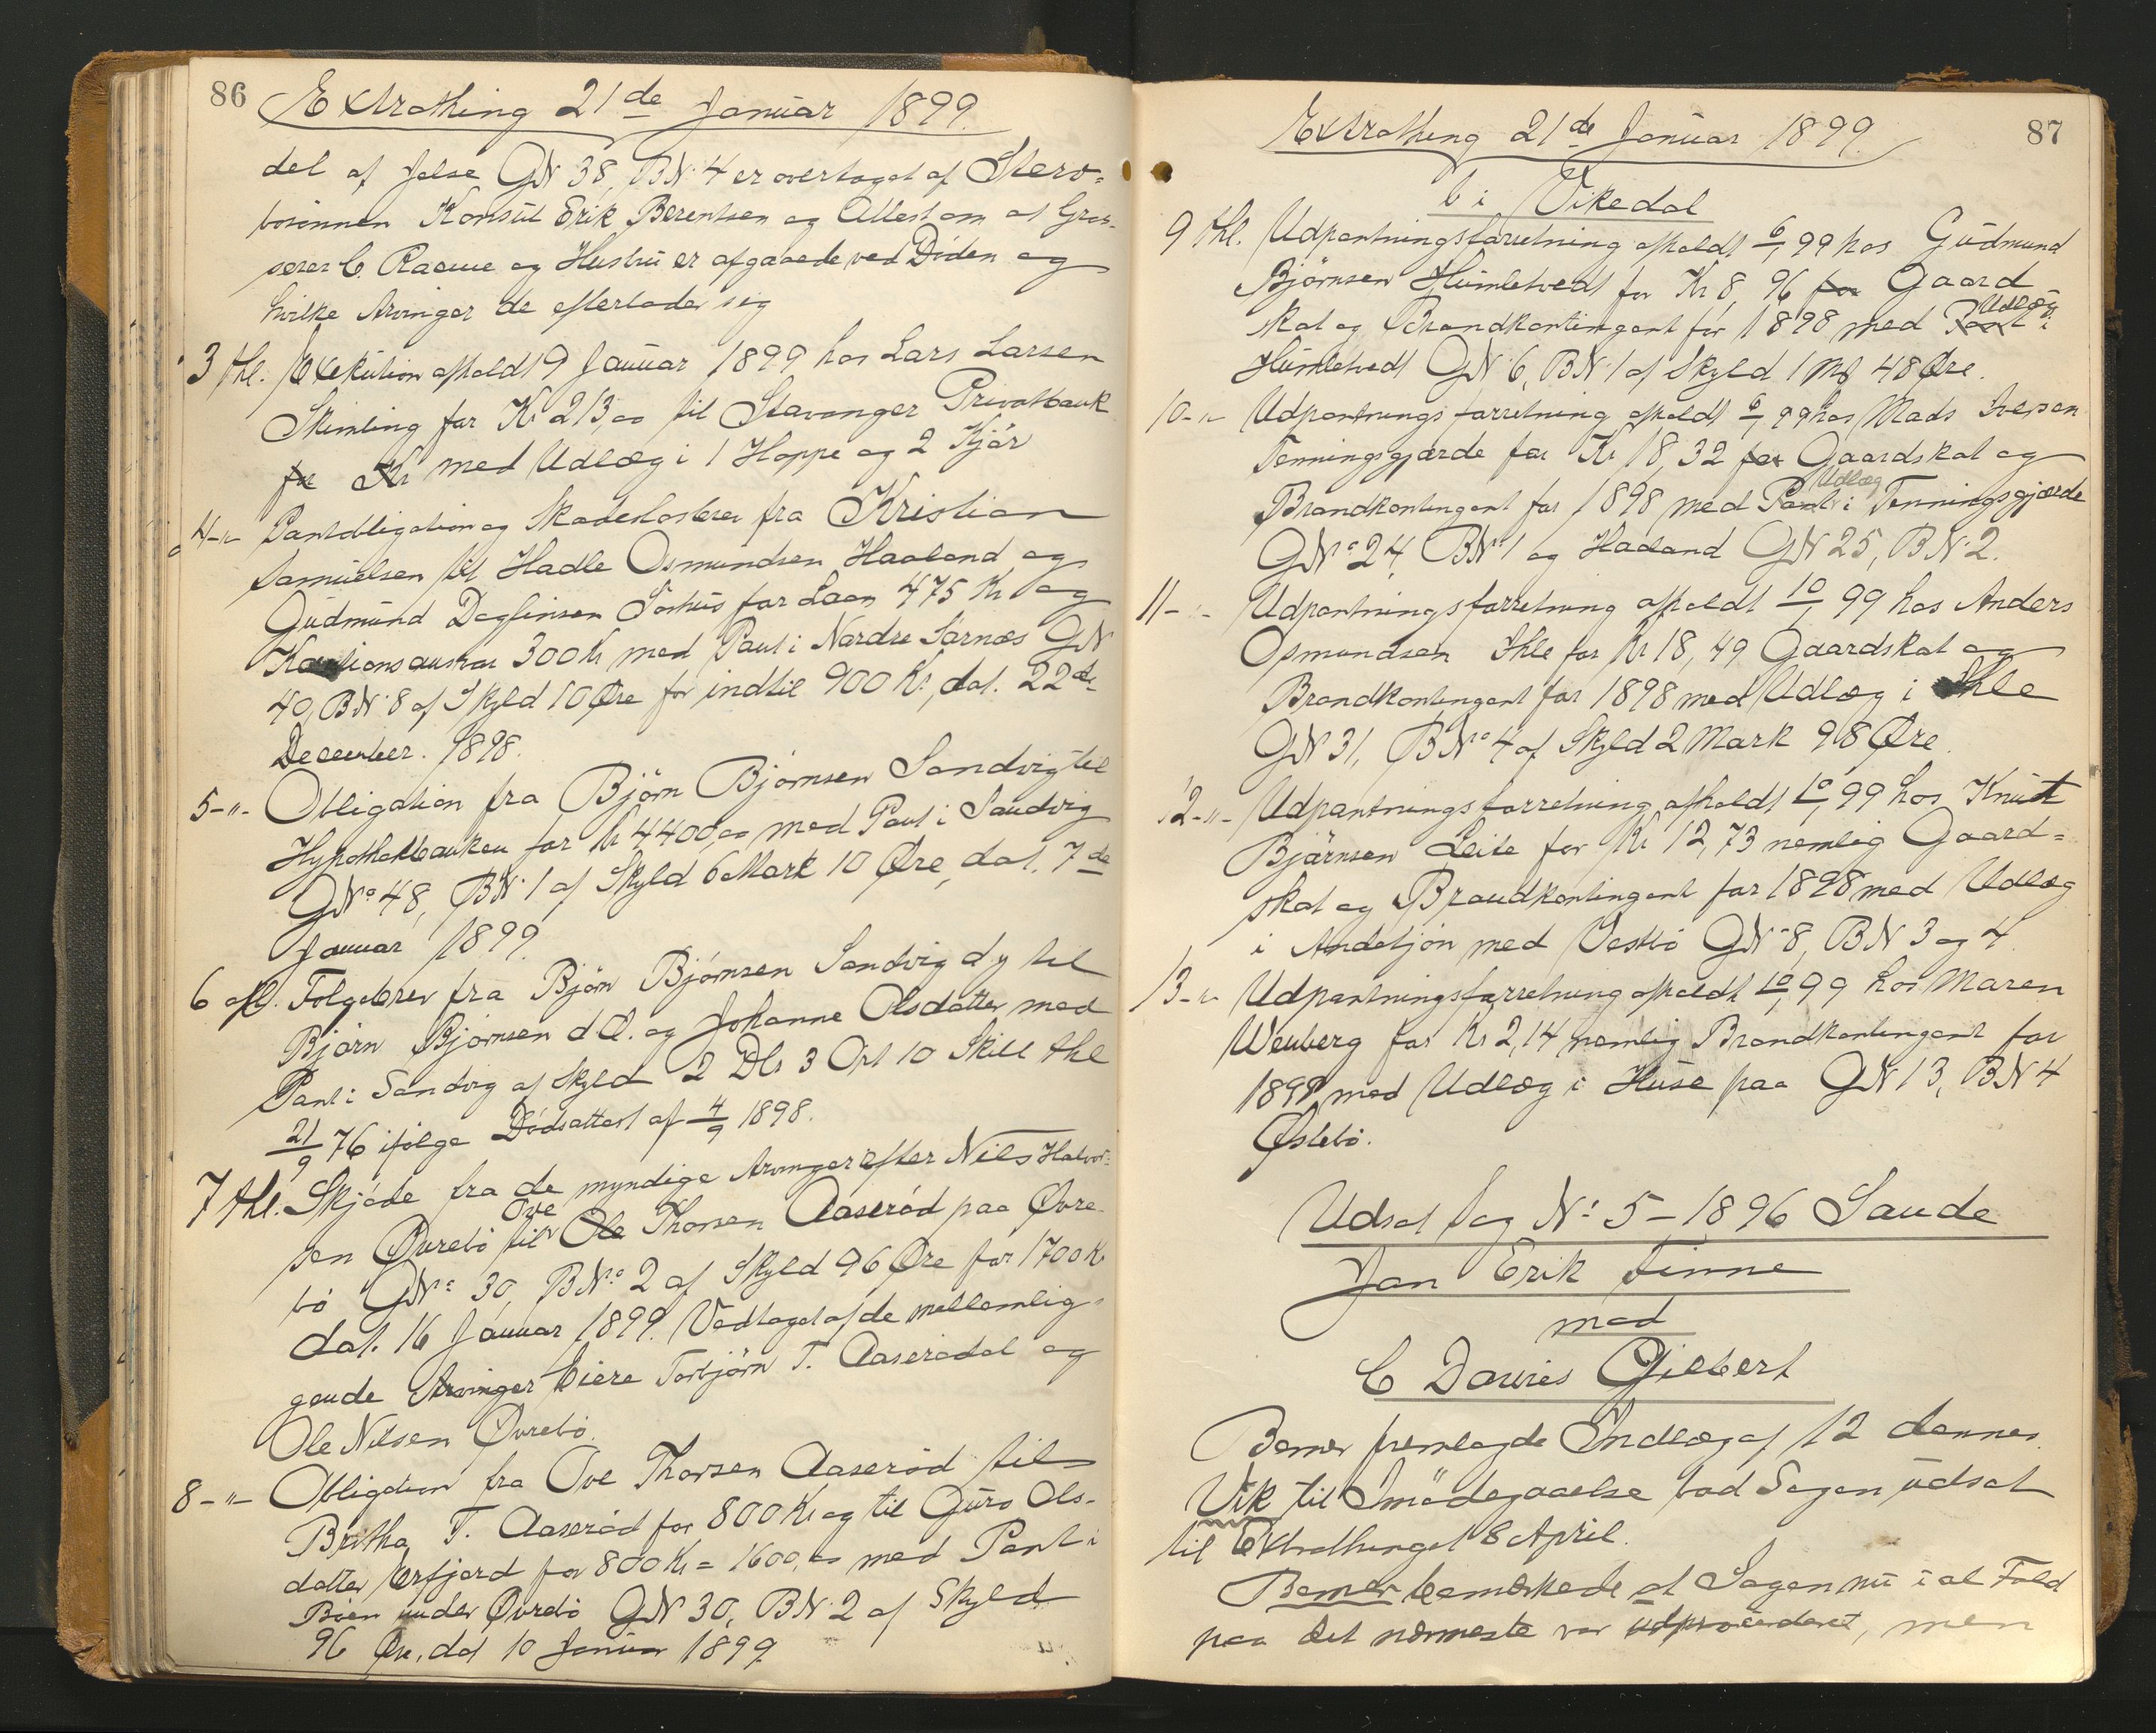 86
Extrathing 21de Januar 1899.
del af Jelse GN 38, BN. 4 er overtaget af Stervboinnen
Konsul Erik Berentsen og Attest om at Grosserer
C. Racine og Hustru er afgaaede ved Døden og
hvilke Arvinger de efterlader sig
3 thl. Exekution afholdt 9 Januar 1899 hos Lars Larsen
Skimling for Kr 213,00 til Stavanger Privatbank
for Kr med Udlæg i 1 Hoppe og 2 Kjör
4-"- Pantobligation og Skadeslösbrev fra Kristian
Samuelsen til Hadle Osmundsen Haaland og
Gudmund Dagfinsen Foshus for Laan 475 Kr og
Kautionsansvar 300 Kr med Pant i Nordre Sørnæs GN
40, BN. 8 af Skyld 10 Øre for indtil 900 Kr, dat. 22de
December. 1898.
5-"- Obligation fra Björn Björnsen Sandvig til
Hypothekbanken for Kr 4400,00 med Pant i Sandvig
GNo 48, BN. 1 af Skyld 6 Mark 10 Øre, dat. 7de
Januar 1899.
6 afl. Følgebrev fra Björn Björnsen Sandvig d y til
Björn Björnsen d Æ. og Johanne Olsdatter med
Pant i Sandvig af Skyld 2 Dlr 3 Ort 10 Skill thl
21/9 76 ifølge Dødsattest af 4/9 1898.
7 thl. Skjöde fra de myndige Arvinger efter Nils Halvorsen
Øvrebö til Ole Thorsen Aaseröd paa Øvre-
Ove
bö GNo 30, BNo 2 af Skyld 96 Øre for 1700 Kr
dat. 16 Januar 1899. Vedtaget af de mellemlig-
gende Arvinger Eiere Torbjörn T. Aaserödal og
Ole Nilsen Øvrebö.
8-"- Obligation fra Ove Thorsen Aaseröd til
Britha T. Aaseröd for 800 Kr og til Guro Ols-
datter Erfjord for 800 Kr = 1600,00 med Pant i
Böen under Øvrebö GN 30, BN. 2 af Skyld
96 Øre, dat 10 Januar 1899.
87
Extrathing 21de Januar 1899.
b i Vikedal
9 thl. Udpantningsforretning afholdt 6/1 99 hos Gudmund
Björnsen Humletvedt for Kr 8,96 for Gaard
skat og Brandkontingent for 1898 med Pant i
Udlæg
Humletvedt GN. 6, BN. 1 af Skyld 1 Mk 48 Øre.
10-"- Udpantningsforretning afholdt 6/1 99 hos Mads Iversen
Tenningsgjærde for Kr 18,32 for Gaardskat og
Brandkontingent for 1898 med Pant i Tenningsgjærde
Udlæg
GNo 24, BN. 1 og Hadland GN 25, BN. 2.
11-"- Udpantningsforretning afholdt 10/1 99 hos Anders
Osmundsen Ihle for Kr 18,49 Gaardskat og
Brandkontingent for 1898 med Udlæg i Ihle
GN 31, BNo 4 af Skyld 2 Mark 98 Øre.
12-"- Udpantningsforretning afholdt 10/1 99 hos Knut
Björnsen Leite for Kr 12,73 nemlig Gaard-
skat og Brandkontingent for 1898 med Udlæg
i Andeljön med Vestbö GN. 8, BN 3 og 4.
13-"- Udpantningsforretning afholdt 10/1 99 hos Maren
Wenberg for Kr 2,14 nemlig Brandkontingent for
1898 med Udlæg i Huse paa GN 13, BN 4
Østebö.
Udsat Sag No 5 - 1896 Saude
Jan Erik Finne
mod
C Davies Gilbert
Bemer fremlagde Indlæg af 12 dennes.
Vik til Imödegaaelse bad Sagen udsat
til Extrathinget 8 April.
Bemer bemærkede at Sagen nu i al Fald
paa det nærmeste var udprocederet, men